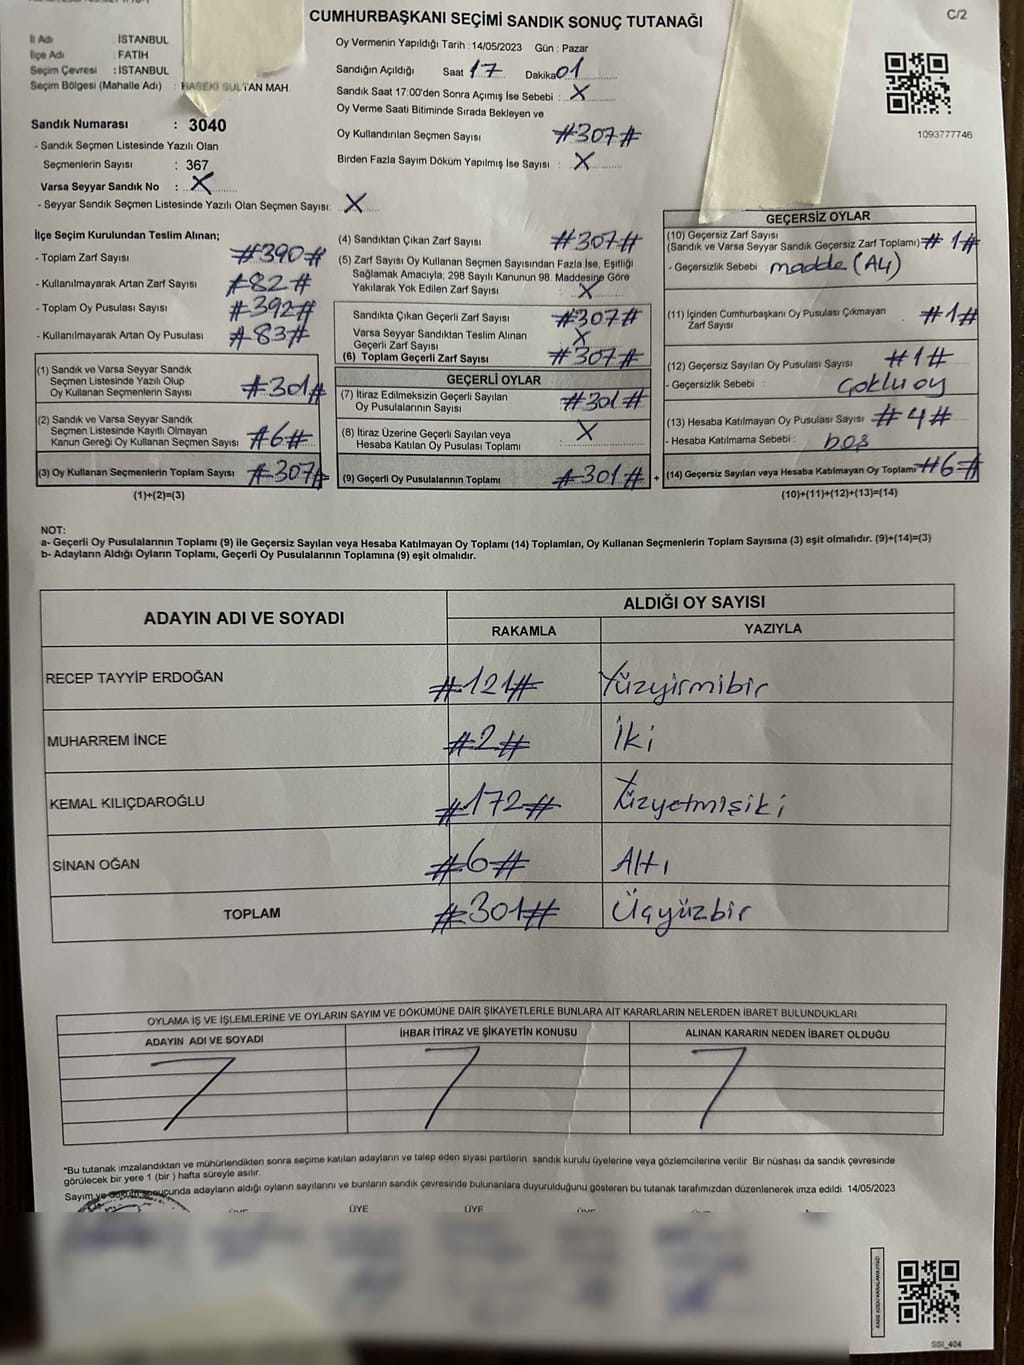 CUMHURBAŞKANI SEÇİMİ SANDIK SONUÇ TUTANAĞI
C/2
İl Adı İSTANBUL
İlçe Adı : FATİH
Seçim Çevresi : İSTANBUL
Seçim Bölgesi (Mahalle Adı) : HASEKİ SULTAN MAH.
Sandık Numarası : 3040
- Sandık Seçmen Listesinde Yazılı Olan
Seçmenlerin Sayısı : 367
Varsa Seyyar Sandık No : X
- Seyyar Sandık Seçmen Listesinde Yazılı Olan Seçmen Sayısı: X
Oy Vermenin Yapıldığı Tarih : 14/05/2023 Gün : Pazar
Sandığın Açıldığı Saat 17 Dakika 01
Sandık Saat 17:00'den Sonra Açımış İse Sebebi : X
Oy Verme Saati Bitiminde Sırada Bekleyen ve
Oy Kullandırılan Seçmen Sayısı #307#
Birden Fazla Sayım Döküm Yapılmış İse Sayısı : X
1093777746
İlçe Seçim Kurulundan Teslim Alınan;
- Toplam Zarf Sayısı #390#
- Kullanılmayarak Artan Zarf Sayısı #82#
- Toplam Oy Pusulası Sayısı #392#
- Kullanılmayarak Artan Oy Pusulası #83#
(1) Sandık ve Varsa Seyyar Sandık
Seçmen Listesinde Yazılı Olup
Oy Kullanan Seçmenlerin Sayısı #301#
(2) Sandık ve Varsa Seyyar Sandık
Seçmen Listesinde Kayıtlı Olmayan
Kanun Gereği Oy Kullanan Seçmen Sayısı #6#
(3) Oy Kullanan Seçmenlerin Toplam Sayısı #307#
(1)+(2)=(3)
(4) Sandıktan Çıkan Zarf Sayısı #307#
(5) Zarf Sayısı Oy Kullanan Seçmen Sayısından Fazla İse, Eşitliği
Sağlamak Amacıyla; 298 Sayılı Kanunun 98. Maddesine Göre
Yakılarak Yok Edilen Zarf Sayısı X
Sandıkta Çıkan Geçerli Zarf Sayısı #307#
Varsa Seyyar Sandıktan Teslim Alınan
Geçerli Zarf Sayısı X
(6) Toplam Geçerli Zarf Sayısı #307#
GEÇERLİ OYLAR
(7) İtiraz Edilmeksizin Geçerli Sayılan
Oy Pusulalarının Sayısı #301#
(8) İtiraz Üzerine Geçerli Sayılan veya
Hesaba Katılan Oy Pusulası Toplamı : X
(9) Geçerli Oy Pusulalarının Toplamı #301# +
GEÇERSİZ OYLAR
(10) Geçersiz Zarf Sayısı
(Sandık ve Varsa Seyyar Sandık Geçersiz Zarf Toplamı) #1#
- Geçersizlik Sebebi madde (A4)
(11) İçinden Cumhurbaşkanı Oy Pusulası Çıkmayan
Zarf Sayısı #1#
(12) Geçersiz Sayılan Oy Pusulası Sayısı #1#
- Geçersizlik Sebebi : Çoklu oy
(13) Hesaba Katılmayan Oy Pusulası Sayısı #4#
- Hesaba Katılmama Sebebi : boş
(14) Geçersiz Sayılan veya Hesaba Katılmayan Oy Toplamı #6#
(10)+(11)+(12)+(13)=(14)
NOT:
a- Geçerli Oy Pusulalarının Toplamı (9) ile Geçersiz Sayılan veya Hesaba Katılmayan Oy Toplamı (14) Toplamları, Oy Kullanan Seçmenlerin Toplam Sayısına (3) eşit olmalıdır. (9)+(14)=(3)
b- Adayların Aldığı Oyların Toplamı, Geçerli Oy Pusulalarının Toplamına (9) eşit olmalıdır.
ADAYIN ADI VE SOYADI ALDIĞI OY SAYISI
RAKAMLA YAZIYLA
RECEP TAYYİP ERDOĞAN #121# Yüzyirmibir
MUHARREM İNCE #2# İki
KEMAL KILIÇDAROĞLU #172# Yüzyetmişiki
SİNAN OĞAN #6# Altı
TOPLAM #301# Üçyüzbir
OYLAMA İŞ VE İŞLEMLERİNE VE OYLARIN SAYIM VE DÖKÜMÜNE DAİR ŞİKAYETLERLE BUNLARA AİT KARARLARIN NELERDEN İBARET BULUNDUKLARI
ADAYIN ADI VE SOYADI İHBAR İTİRAZ VE ŞİKAYETİN KONUSU ALINAN KARARIN NEDEN İBARET OLDUĞU
*Bu tutanak imzalandıktan ve mühürlendikten sonra seçime katılan adayların ve talep eden siyasi partilerin sandık kurulu üyelerine veya gözlemcilerine verilir Bir nüshası da sandık çevresinde
görülecek bir yere 1 (bir ) hafta süreyle asılır.
Sayım ve döküm sonucunda adayların aldığı oyların sayılarını ve bunların sandık çevresinde bulunanlara duyurulduğunu gösteren bu tutanak tarafımızdan düzenlenerek imza edildi. 14/05/2023
ÜYE ÜYE ÜYE
SSİ_404